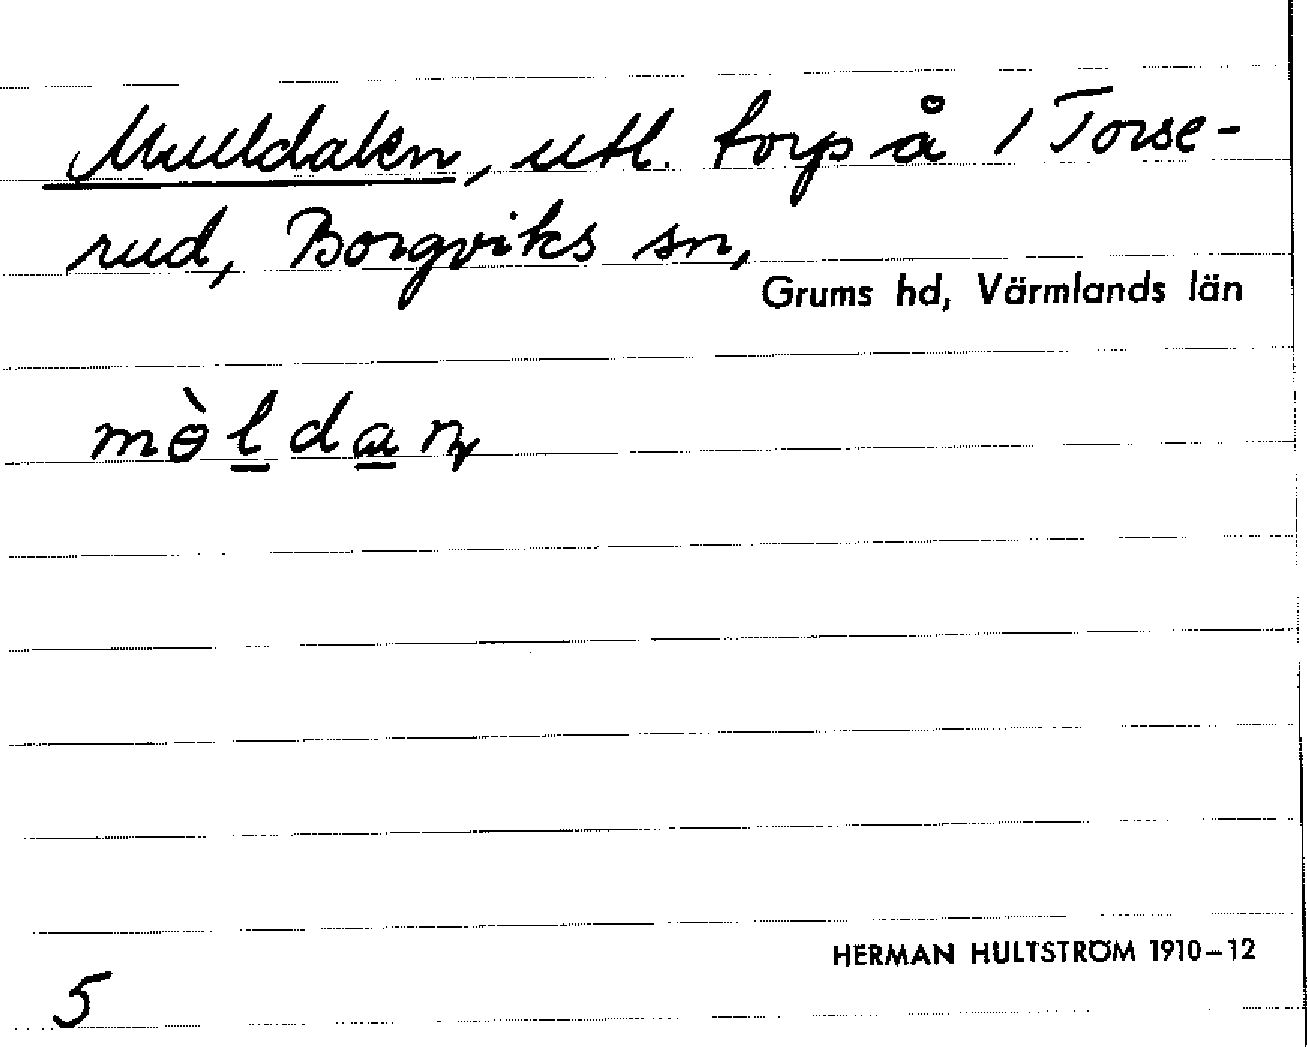 Mulldalen, utl. torp å 1 Torse-
rud, Borgviks sn,
Grums hd, Värmlands län
mɵ̀ldaṇ
HERMAN HULTSTRÖM 1910–12
5